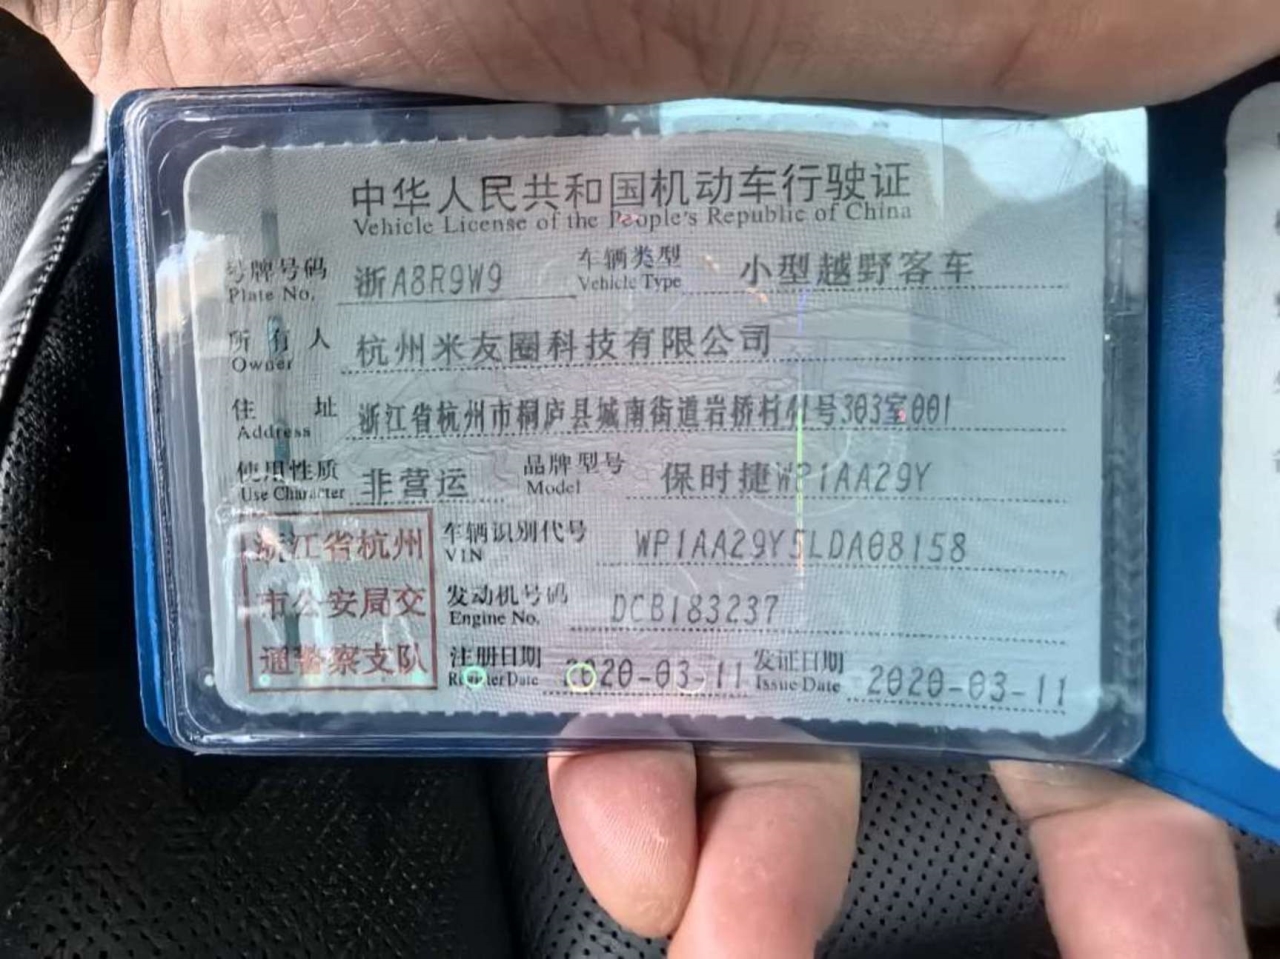 中华人民共和国机动车行驶证
Vehicle License of the People's Republic of China
号牌号码 浙A8R9W9 车辆类型 小型越野客车
Plate No. Vehicle Type
所有人 杭州米友圈科技有限公司
Owner
住址 浙江省杭州市桐庐县城南街道岩桥村 号303室001
Address
使用性质 非营运 品牌型号 保时捷WP1AA29Y
Use Character Model
浙江省杭州 车辆识别代号 WP1AA29Y5LDA08158
VIN
市公安局交 发动机号码 DCB183237
Engine No.
通警察支队 注册日期 2020-03-11 发证日期 2020-03-11
Register Date Issue Date